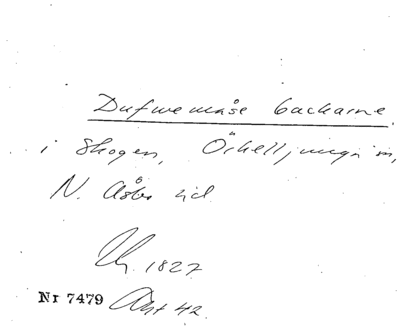 Dufwemåse backarne.
i Skogen, Örkelljunga sn,
N. Åsbo hd.
1827
Nr 7479 Akt 42